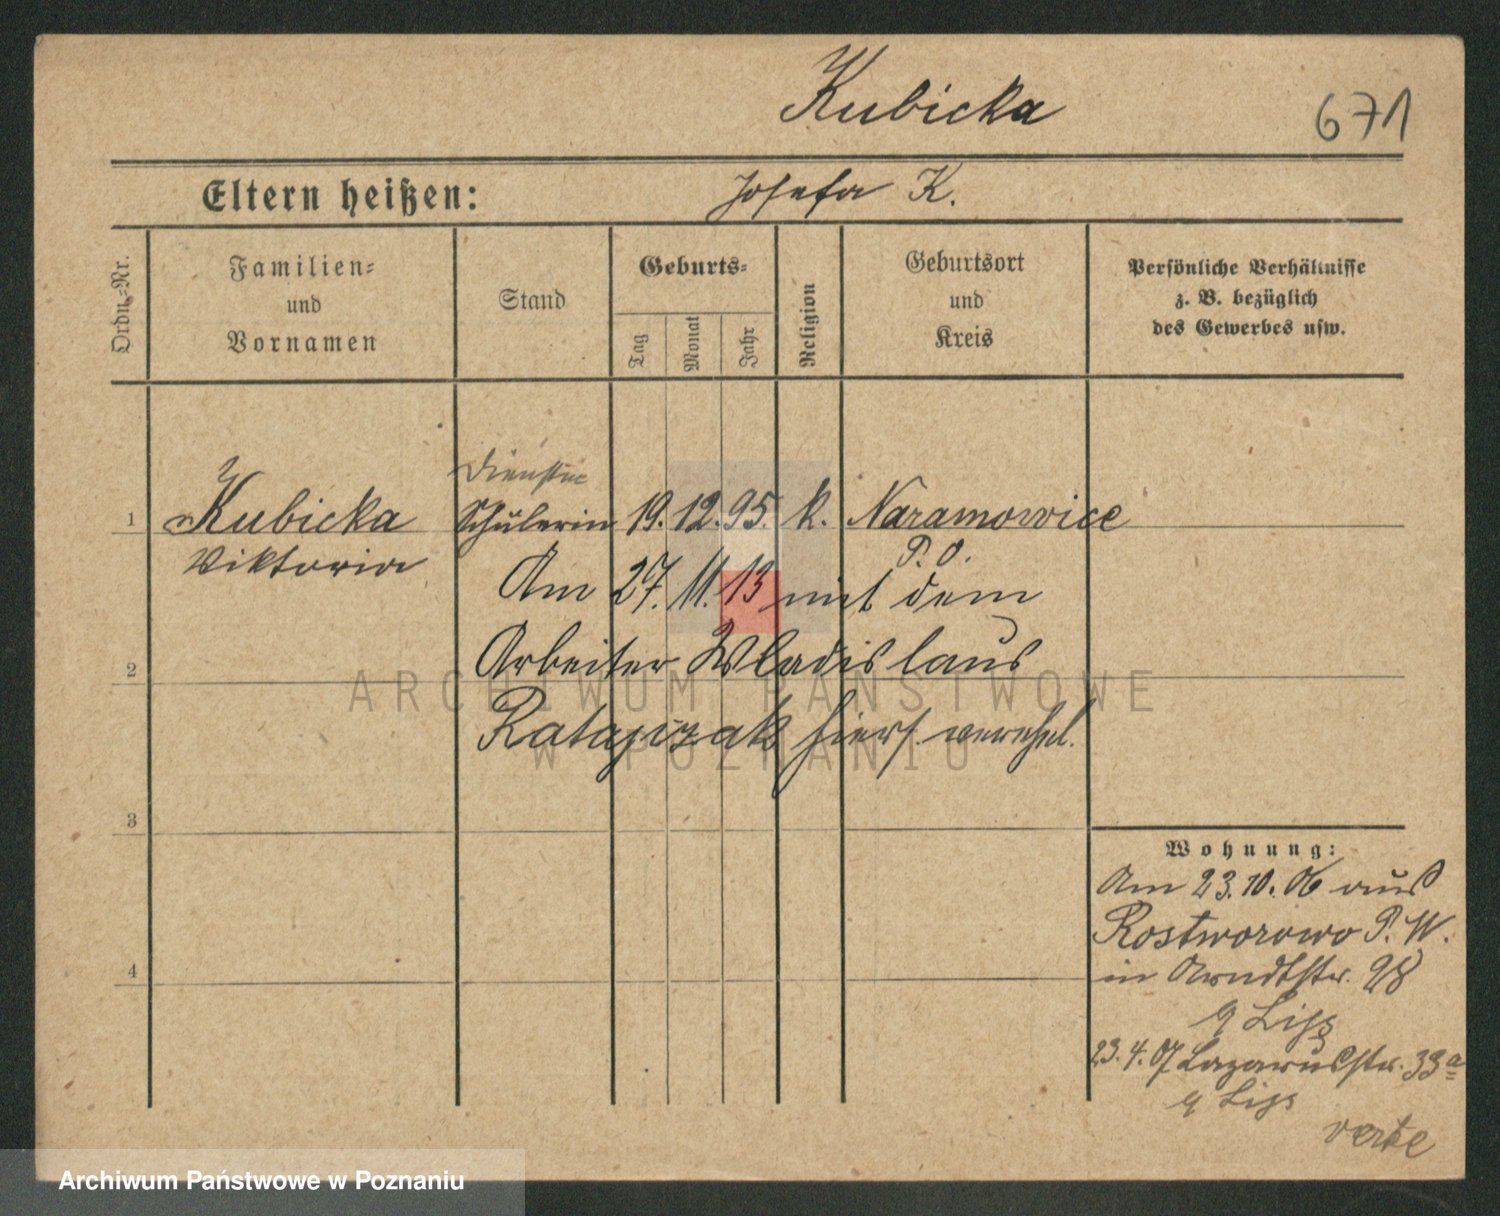 Kubicka
671
Eltern heißen: Josefa K.
Ordn.-Nr.
Familien-
und
Vornamen
Stand
Geburts-
Tag
Monat
Jahr
Religion
Geburtsort
und
Kreis
Persönliche Verhältnisse
z. B. bezüglich
des Gewerbes usw.
Dienstm
1 Kubicka Schülerin 19. 12. 95. k. Naramowice
Viktoria
P. O.
Am 27. 11. 13 mit dem
2 Arbeiter Wladislaus
Ratajczak hiers. verehel.
3
4
Wohnung:
Am 23. 10. 06 aus
Rostworowo P. W.
in Arndtstr. 28
23. 4. 07 Lazarusstr. 33a
verte
ARCHIWUM PAŃSTWOWE
W POZNANIU
Archiwum Państwowe w Poznaniu